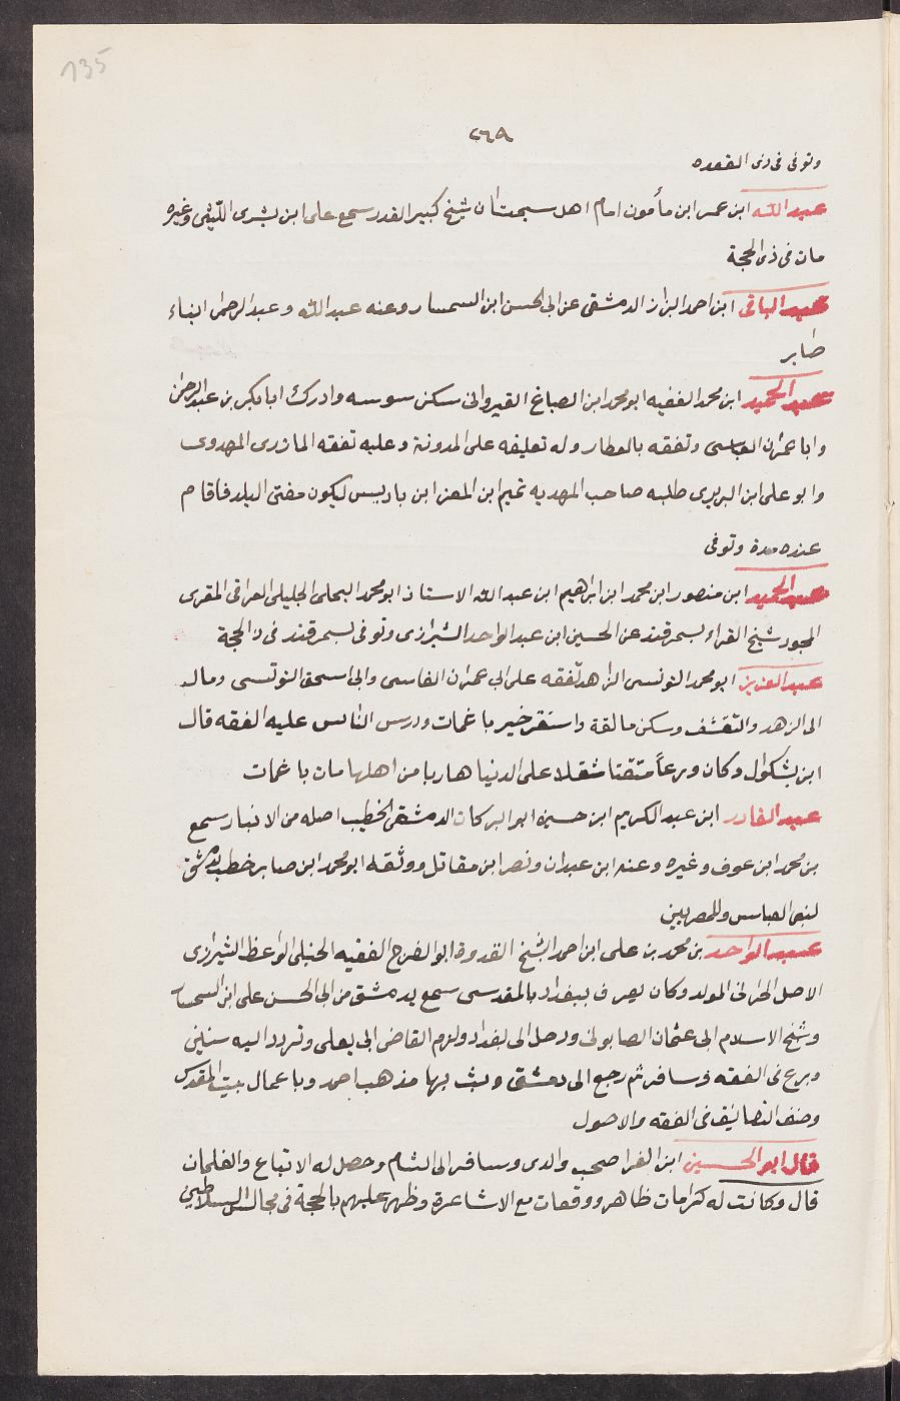 135
٢٦٩
وتوفى فى ذى القعده
عبد الله ابن عمر ابن مأمون امام اهل سجستان شيخ كبير القدر سمع على ابن بشرى الليثى وغيره
مات فى ذى الحجة
عبد الباقى ابن احمد البزاز الدمشقى عن ابى الحسن ابن السمسار وعنه عبد الله وعبد الرحمن ابناء
صابر
عبد الحميد ابن محمد الفقيه ابو محمد ابن الصباغ القيروانى سكن سوسه وادرك ابا بكر بن عبد الرحمن
وابا عمران الفاسى وتفقه بالعطار وله تعليقه على المدونة وعليه تفقه المازرى المهدوى
وابو على ابن البربرى طلبه صاحب المهديه تميم ابن المعز ابن باديس ليكون مفتى البلد فاقام
عنده مدة وتوفى
عبد الحميد ابن منصور ابن محمد ابن ابراهيم ابن عبد الله الاستاذ ابو محمد البجلى الجليلى العراقى المقرى
المجود شيخ القراء بسمرقند عن الحسين ابن عبد الواحد الشيرازى وتوفى بسمرقند فى ذ الحجة
عبد العزيز ابو محمد التونسى الزاهد تفقه على ابى عمران الفاسى وابى اسحق التونسى ومال
الى الزهد والتقشف وسكن مالقة واستقر خير باغمات ودرس الناس عليه الفقه قال
ابن بشكوال وكان ورعاً متقنا متقلا على الدنيا هاربا من اهلها مات باغمات
عبد القادر ابن عبد الكريم ابن حسين ابو البركات الدمشقى الخطيب اصله من الانبار سمع
بن محمد ابن عوف وغيره وعنه ابن عبدان ونصر ابن مقاتل ووثقه ابو محمد ابن صابر خطب بدمشق
لبنى العباس وللمصريين
عبد الواحد بن محمد بن على ابن احمد الشيخ القدوة ابو الفرج الفقيه الحنبلى الواعظ الشيرازى
الاصل الحرانى المولد وكان يعرف ببغداد بالمقدسى سمع بدمشق من ابى الحسن على ابن السمسار
وشيخ الاسلام ابى عثمان الصابونى ورحل الى بغداد ولزم القاضى ابى يعلى وتردد اليه سنين
وبرع فى الفقه وسافر ثم رجع الى دمشق وبث بها مذهب احمد وباعمال بيت المقدس
وصنف التصانيف فى الفقه والاصول
قال ابو الحسين ابن الفرا صحب والدى وسافر الى الشام وحصل له الاتباع والغلمان
قال وكانت له كرامات ظاهر ووقعات مع الاشاعرة وظهر عليهم بالحجة فى مجالس السلاطين